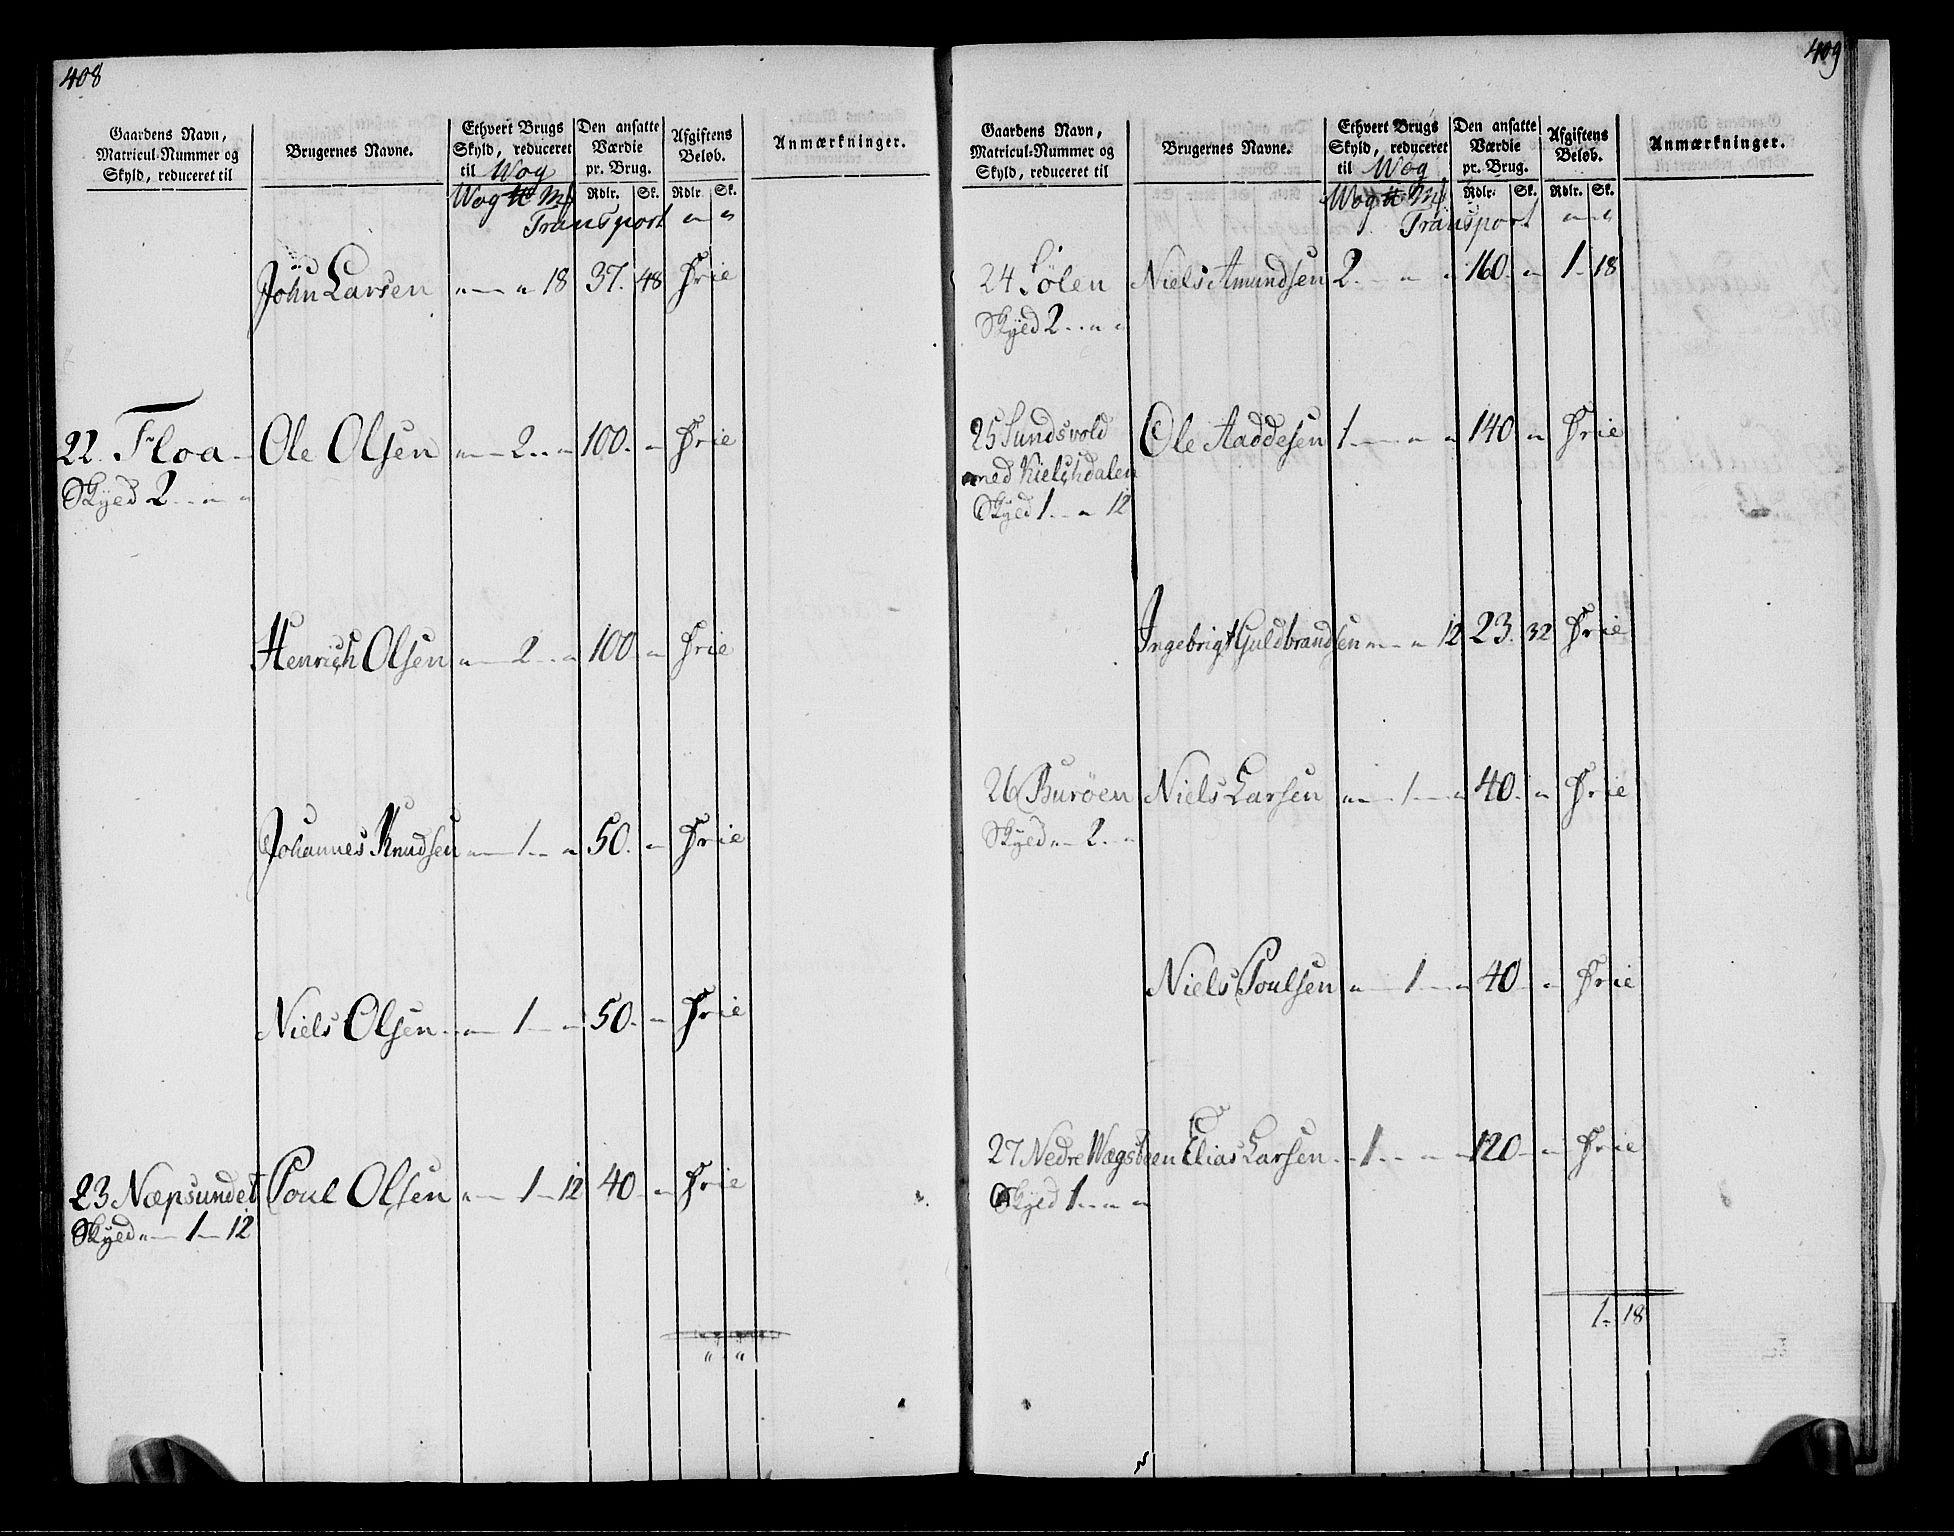 408
Gaardens Navn, Matricul-Nummer og Skyld, reduceret til
Brugernes Navne.
Ethvert Brugs Skyld, reduceret til Wog
Den ansatte Værdie pr. Brug.
Afgiftens Beløb.
Anmærkninger.
Wog Rdlr. Sk. Rdlr. Sk.
Transport " "
John Larsen " — " 18 37. 48 Frie
22. Floa Ole Olsen " — 2 .. " 100. " Frie
Skyed 2 .. " "
Henrich Olsen " — 2 .. " 100 " Frie
Johannes Knudsen " — 1 .. " 50. " Frie
Niels Olsen " — 1 — " 50. " Frie
23 Næpsundet Poul Olsen " — 1 — 12 40 " Frie
Skyed " — 1 — 12
" "
409
Gaardens Navn, Matricul-Nummer og Skyld, reduceret til
Brugernes Navne.
Ethvert Brugs Skyld, reduceret til Wog
Den ansatte Værdie pr. Brug.
Afgiftens Beløb.
Anmærkninger.
Wog Rdlr. Sk. Rdlr. Sk.
Transport " "
24 Sølen Niels Amundsen 2. — " " 160. " 1 - 18
Skyed 2 .. " "
25 Sundsvold Ole Aaddesen 1 — " " 140 " Frie
med Kielshdalen
Skyed 1 .. " 12
Ingebrigt Guldbrandsen " — " 12 23. 32 Frie
26 Burøen Niels Larsen " — 1 — " 40. " Frie
Skyed " — 2. — "
Niels Poulsen " — 1 — " 40 " Frie
27 Nedre Wægsteen Elias Larsen 1. — " " 120 " Frie
Skyed 1 .. " "
1 - 18